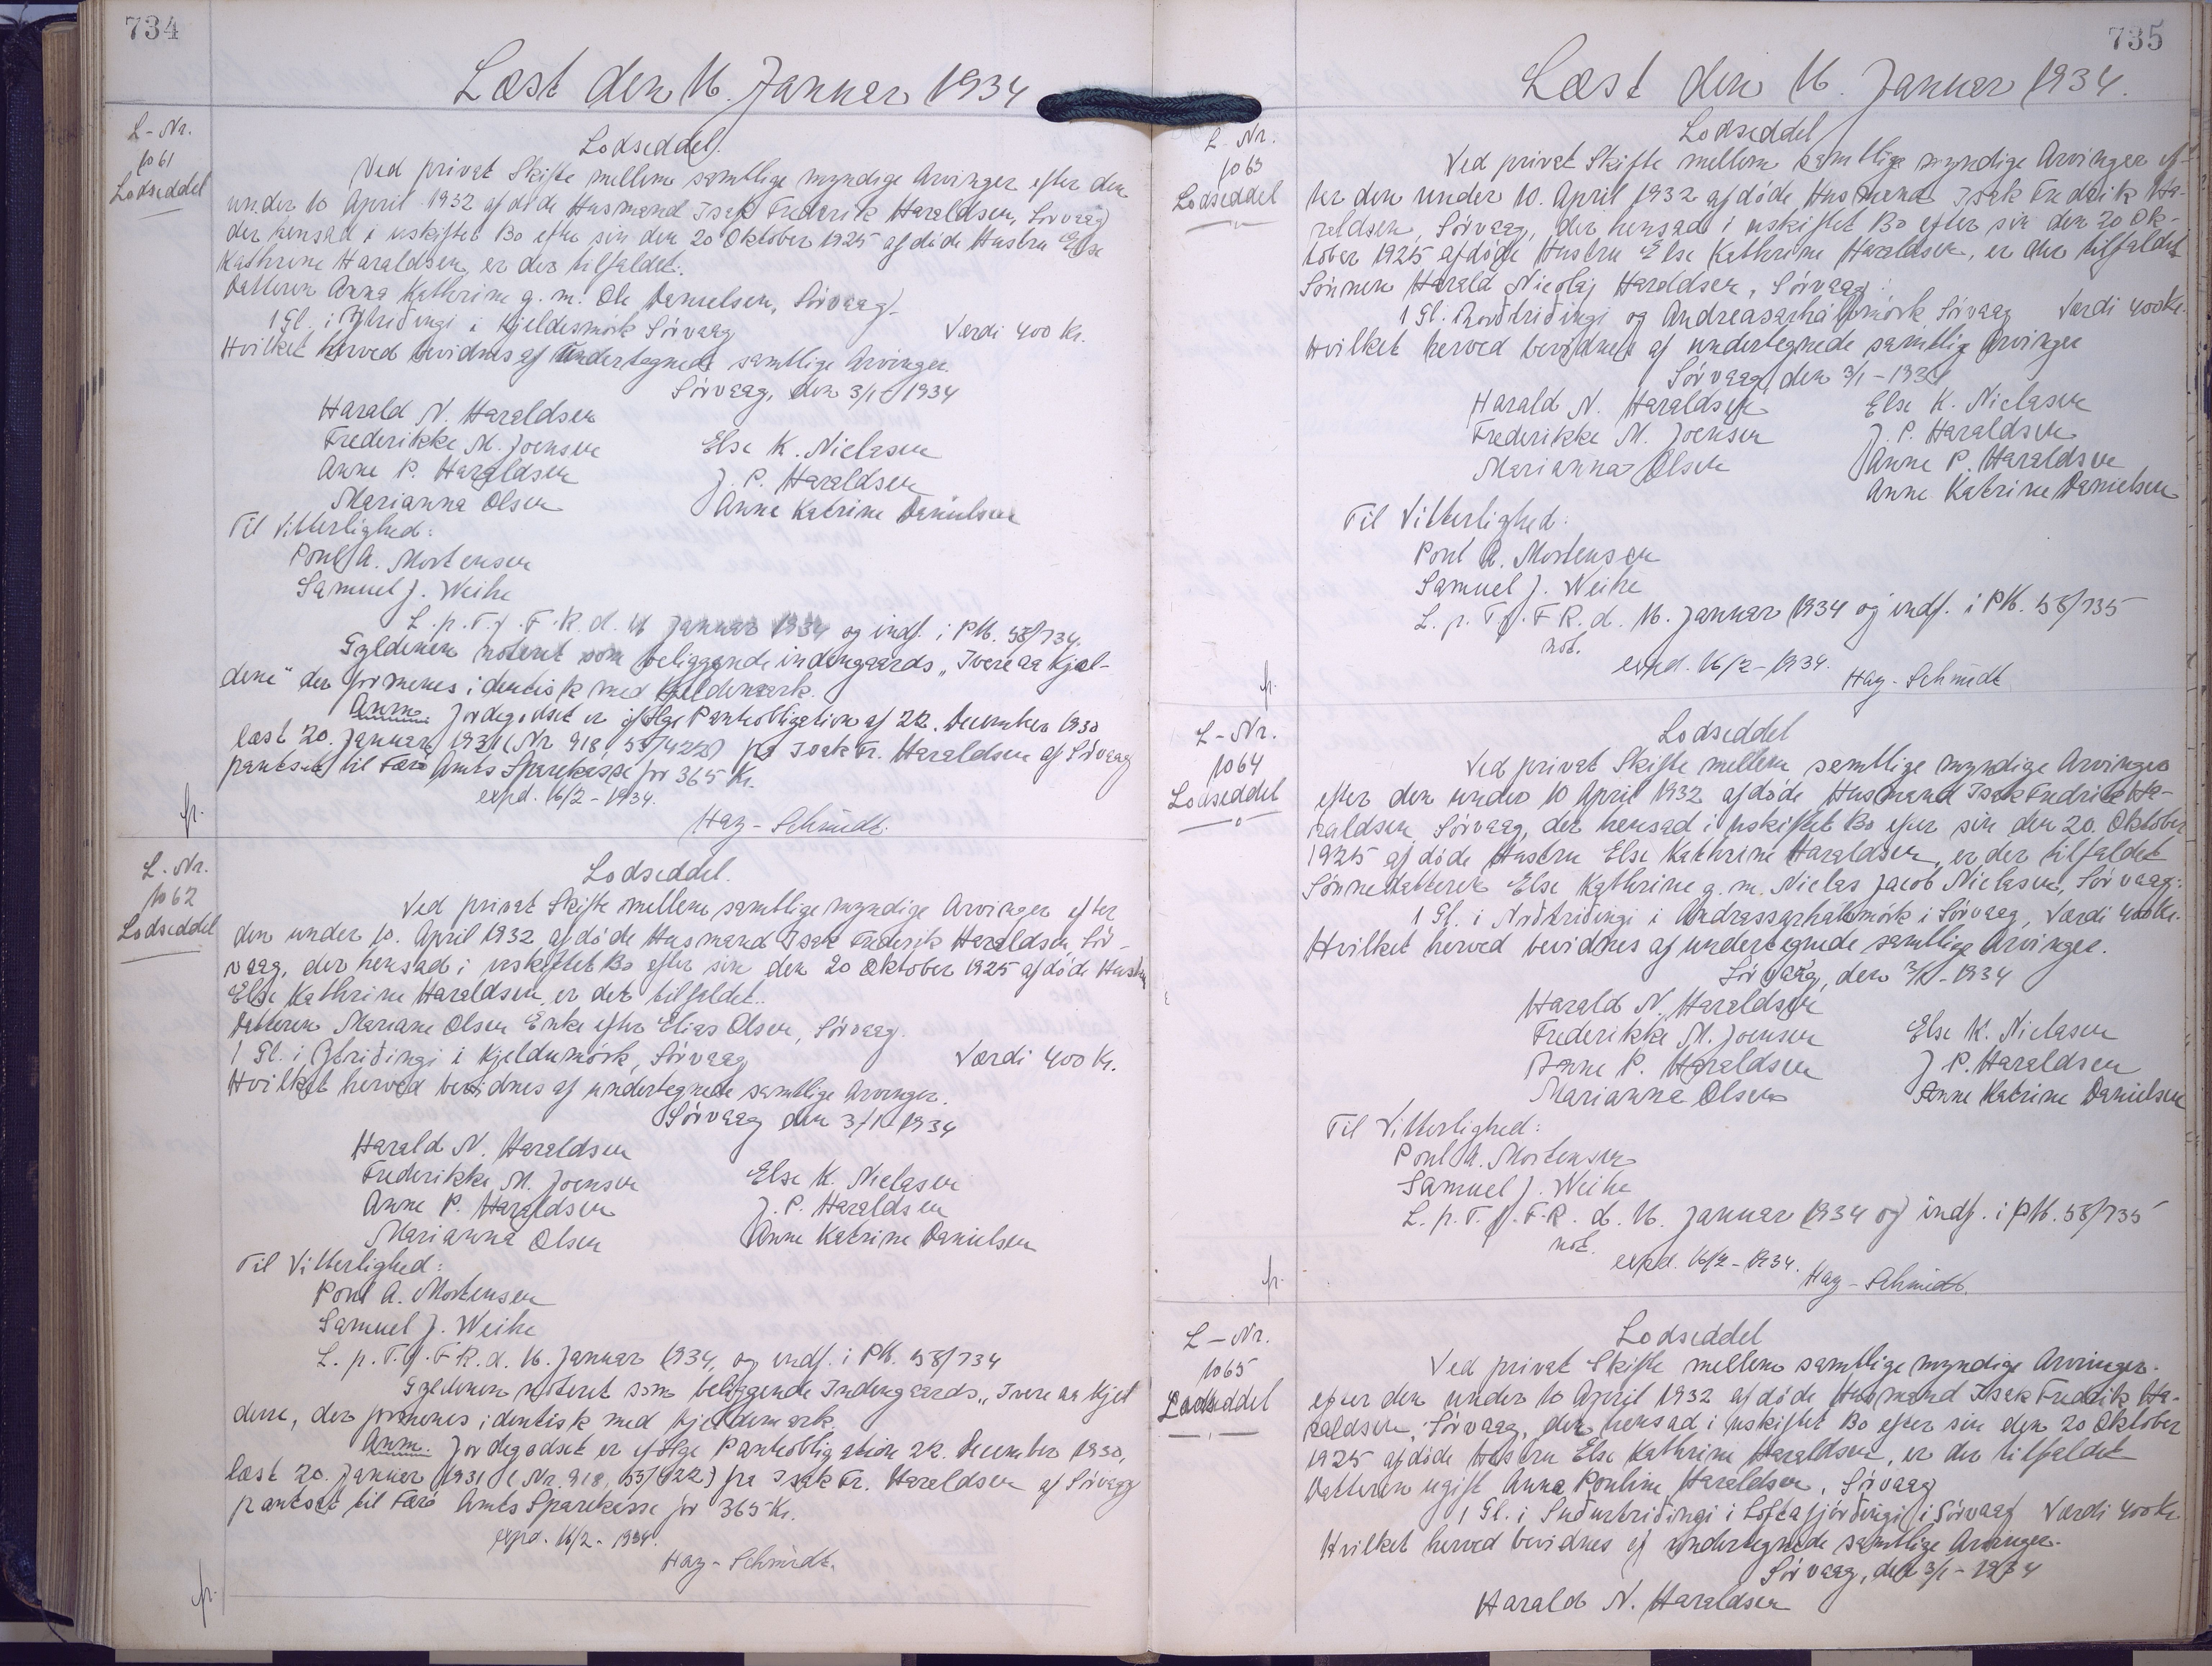 734
Læst den 16. Januar 1934
L-Nr.
1061
Lodseddel
Lodseddel.
Ved privat Skifte mellem samtlige myndige Arvinger efter den
under 10 April 1932 afdöde Husmand Isak Frederik Haraldsen, Sörvaag
der hensad i uskiftet Bo efter sin den 20 Oktober 1925 afdöde Hustru Else
Kathrine Haraldsen, er der tilfaldet.
Datteren Anna Kathrine g. m. Ole Danielsen, Sörvaag.
1 Gl. i Ytridingi i Kjeldesmörk Sörvaag Værdi 400 Kr.
Hvilket herved bevidnes af undertegnede samtlige Arvinger.
Sörvaag, den 3/1-1934
Harald N. Haraldsen
Frederikke M. Joensen Else K. Niclasen
Anne P. Haraldsen J. P. Haraldsen
Marianna Olsen Anne Katrine Danielsen
Til Vitterlighed:
Poul A. Mortensen
Samuel J. Weihe
L. p. T. f. F. R. d. 16 Januar 1934 og indf. i Pk. 58/734.
Gyldenen noteret som beliggende indengaards "Ivere aa Kjel-
dene" der formenes identisk med Kjeldemark.
Anm. Jordegodset er ifölge Pantobligation af 22. December 1930
læst 20. Januar 1931 (Nr 918, 53/422) fra Isak Fr. Haraldsen af Sörvaag
pantsat til Færö Amts Sparekasse for 365 Kr.
exped. 16/2-1934.
Hay-Schmidt.
fr.
L. Nr.
1062
Lodseddel
Lodseddel.
Ved privat Skifte mellem samtlige myndige Arvinger efter
den under 10. April 1932 afdöde Husmand Isak Frederik Haraldsen, Sör-
vaag, der hensad i uskiftet Bo efter sin den 20 Oktober 1925 afdöde Hustru
Else Kathrine Haraldsen, er det tilfaldet..
Datteren Mariane Olsen Enke efter Elias Olsen, Sörvaag.
1 Gl. i Ytridingi i Kjeldumörk, Sörvaag Værdi 400 Kr.
Hvilket herved bevidnes af undertegnede samtlige Arvinger.
Sörvaag den 3/1-1934
Harald N. Haraldsen
Frederikke M. Joensen Else K. Niclasen
Anne P. Haraldsen J. P. Haraldsen
Marianna Olsen Anne Katrine Danielsen
Til Vitterlighed:
Poul A. Mortensen
Samuel J. Weihe
L. p. T. f. F. R. d. 16. Januar 1934, og indf. i Pk. 58/734
Gyldenen noteret som beliggende Indengaards "Ivere aa Kjel
dene, der formenes identisk med Kjeldemark.
Anm. Jordegodset er ifölge Pantobligation 22. December 1930,
læst 20. Januar 1931 (Nr. 918, 53/422) fra Isak Fr. Haraldsen af Sörvaag
pantsat til Færö Amts Sparekasse for 365 Kr.
exped. 16/2-1934.
Hay-Schmidt.
fr.
735
Læst den 16. Januar 1934.
L. Nr.
1063
Lodseddel
Lodseddel
Ved privat Skifte mellem samtlige myndige Arvinger ef-
ter den under 10. April 1932 afdöde Husmand Isak Frederik Ha-
raldsen, Sörvaag, der hensad i uskiftet Bo efter sin den 20 Ok-
tober 1925 afdöde Hustru Else Kathrine Haraldsen, er der tilfaldet
Sönnen Harald Nicolaj Haraldsen, Sörvaag:
1 Gl. Nordtridingi og Andreasarhálvmörk Sörvaag Værdi 400 Kr.
Hvilket herved bevidnes af undertegnede samtlige Arvinger
Sörvaag, den 3/1-1934
Harald N. Haraldsen Else K. Niclasen
Frederikke M. Joensen J. P. Haraldsen
Marianna Olsen Anne P. Haraldsen
Anne Katrine Danielsen
Til Vitterlighed:
Poul A. Mortensen
Samuel J. Weihe
L. p. T. f. F. R. d. 16. Januar 1934 og indf. i Pk. 58/735
not.
exped. 16/2-1934.
Hay-Schmidt
fr.
L-Nr.
1064
Lodseddel
Lodseddel
Ved privat Skifte mellem samtlige myndige Arvinger
efter den under 10 April 1932 afdöde Husmand Isak Fredrik Ha-
raldsen Sörvaag, der hensad i uskiftet Bo efter sin den 20. Oktober
1925 afdöde Hustru Else Kathrine Haraldsen, er der tilfaldet
Sönnedatteren Else Kathrine g. m. Niclas Jacob Niclasen, Sörvaag:
1 Gl. i Nordtridingi i Andrassarhálvmörk i Sörvaag, Værdi 400 Kr.
Hvilket herved bevidnes af undertegnede samtlige Arvinger.
Sörvaag, den 3/1-1934
Harald N. Haraldsen
Frederikke M. Joensen Else K. Niclasen
Anne P. Haraldsen J. P. Haraldsen
Marianna Olsen Anne Katrine Danielsen
Til Vitterlighed:
Poul A. Mortensen
Samuel J. Weihe
L. p. T. f. F. R. d. 16. Januar 1934 og indf. i Pk. 58/735
not.
exped. 16/2-1934.
Hay-Schmidt.
fr.
L-Nr.
1065
Lodseddel
Lodseddel
Ved privat Skifte mellem samtlige myndige Arvinger.
efter den under 10 April 1932 afdöde Husmand Isak Fredrik Ha-
raldsen, Sörvaag, der hensad i uskiftet Bo efter sin den 20 Oktober
1925 afdöde Hustru Else Kathrine Haraldsen, er der tilfaldet
Datteren ugift Anna Pouline Haraldsen, Sörvaag
1 Gl. i Sudurtridingi i Loftafjórdingi i Sörvaag Værdi 400 Kr.
Hvilket herved bevidnes af undertegnede samtlige Arvinger.
Sörvaag, den 3/1-1934
Harald N. Haraldsen